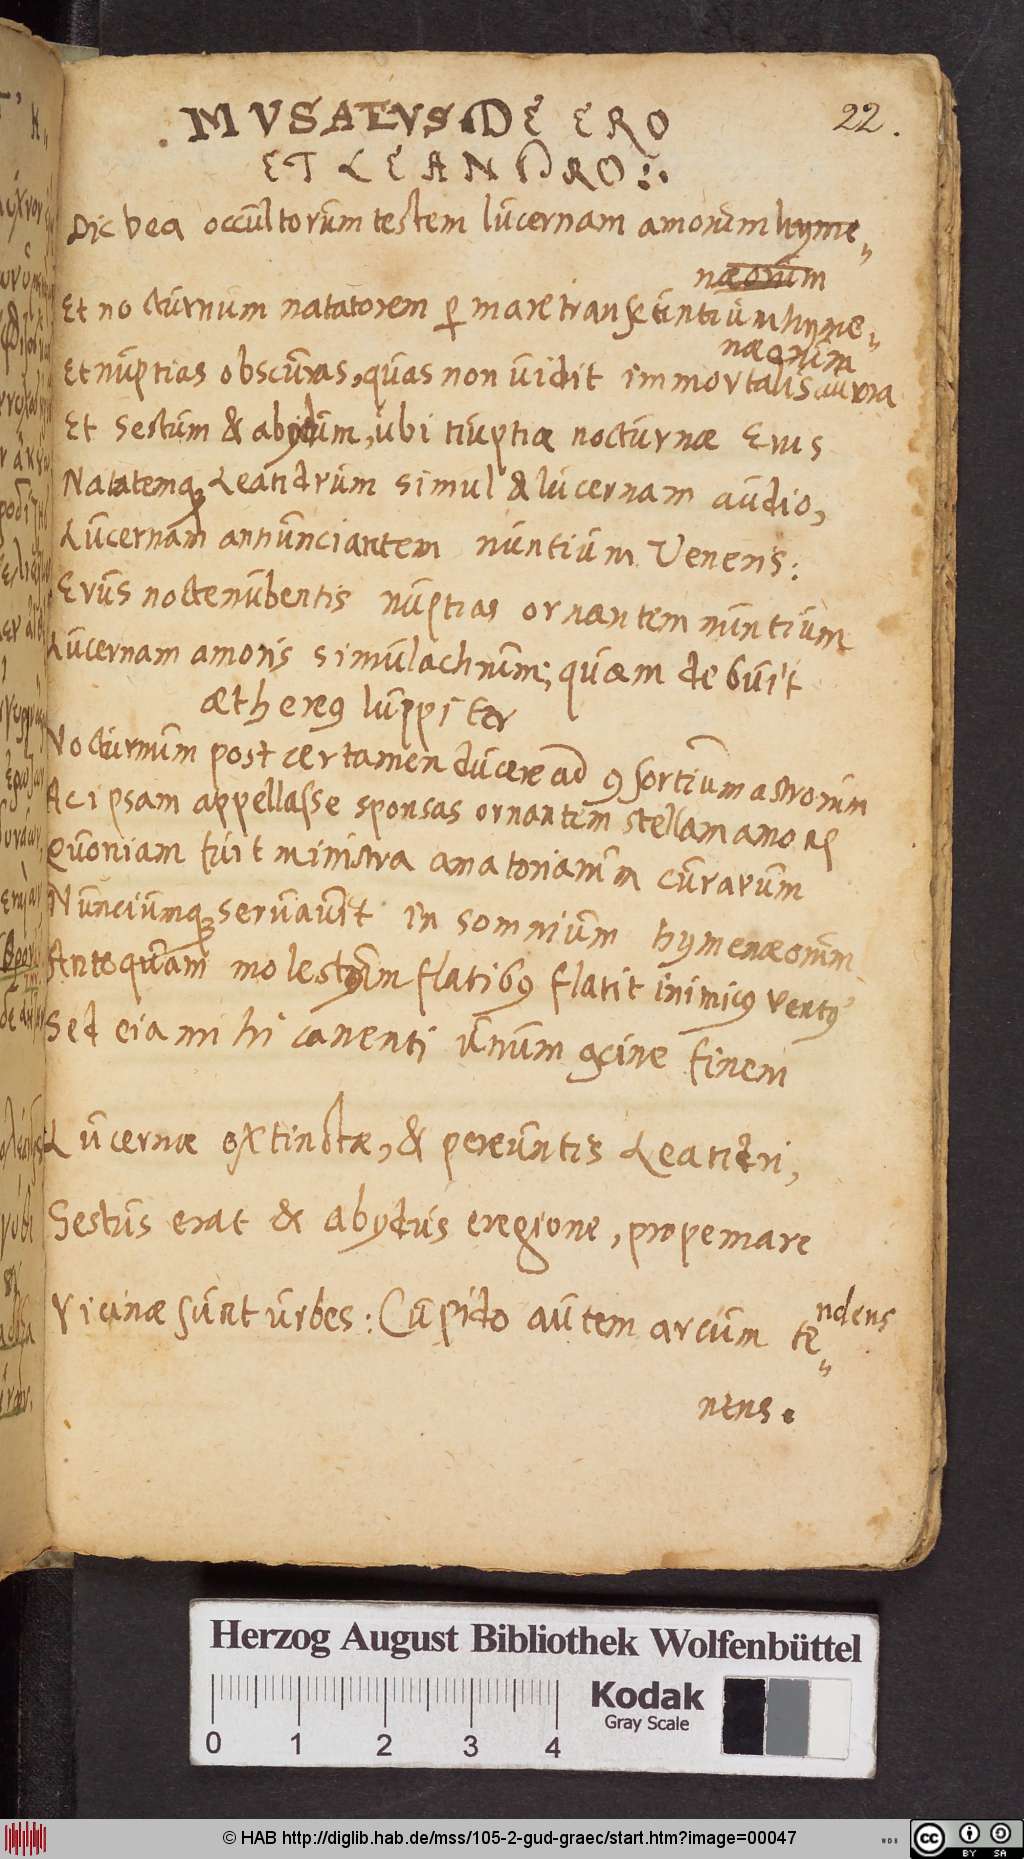 22.
MVSAEVS DE ERO
ET LEANDRO:.
Dic Dea occultorum testem lucernam amorum hyme„
næorum
Et nocturnum natatorem ꝑ mare transeuntium hyme„
næorum
Et nuptias obscuras, quas non uidit immortalis aurora
Et Sestum & abydum, ubi nuptiæ nocturnæ Erus
Natatemq; Leandrum simul & lucernam audio,
Lucernam annunciantem nuntium Veneris:
Erus noctenubentis nuptias ornantem nuntium
Lucernam amoris simulachrum; quam debuit
æthereꝰ Iuppiter
Nocturnum post certamen ducere ad ꝯsortium astrorum
Ac ipsam appellasse sponsas ornantem stellam amoris
Quoniam fuit ministra amatoriarum curarum
Nunciumq; seruauit in somnium hymenæorum
Antequam molestum flatibꝰ flarit inimicꝰ ventꝰ
Sed eia mihi canenti unum ꝯcine finem
Lucernæ extinctæ, & pereuntis Leandri,
Sestus erat & abydus eregione, prope mare
Vicinæ sunt urbes: Cupido autem arcum te„ndens
nens.
Herzog August Bibliothek Wolfenbüttel
Kodak
Gray Scale
0 1 2 3 4
© HAB http://diglib.hab.de/mss/105-2-gud-graec/start.htm?image=00047
WDB
cc BY SA